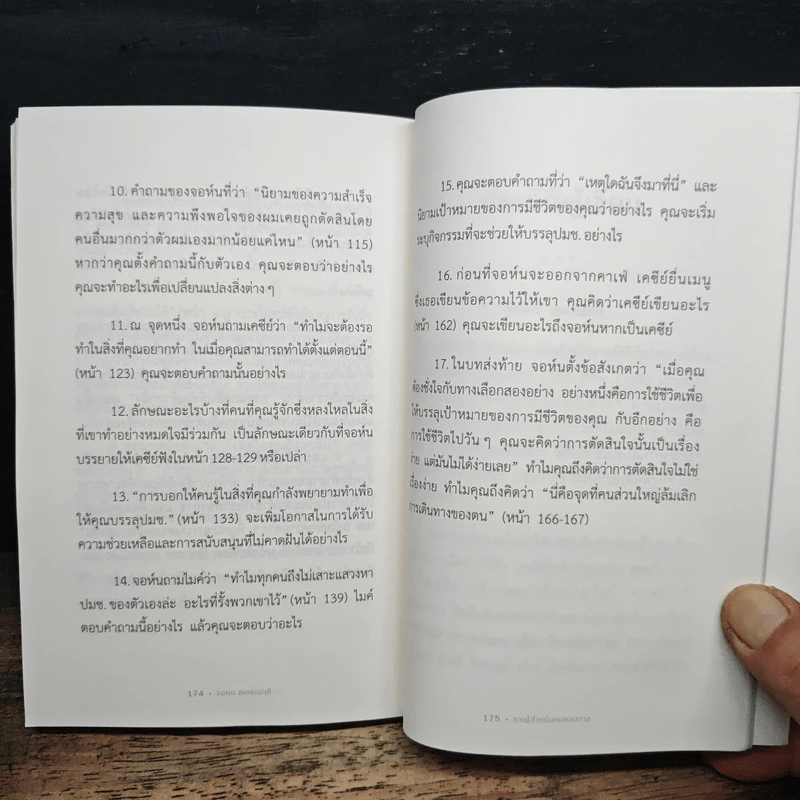 10. คำถามของจอห์นที่ว่า “นิยามของความสำเร็จ
ความสุข และความพึงพอใจของผมเคยถูกตัดสินโดย
คนอื่นมากกว่าตัวผมเองมากน้อยแค่ไหน” (หน้า 115)
หากว่าคุณตั้งคำถามนี้กับตัวเอง คุณจะตอบว่าอย่างไร
คุณจะทำอะไรเพื่อเปลี่ยนแปลงสิ่งต่าง ๆ
11. ณ จุดหนึ่ง จอห์นถามเคซีย์ว่า “ทำไมจะต้องรอ
ทำในสิ่งที่คุณอยากทำ ในเมื่อคุณสามารถทำได้ตั้งแต่ตอนนี้”
(หน้า 123) คุณจะตอบคำถามนั้นอย่างไร
12. ลักษณะอะไรบ้างที่คนที่คุณรู้จักซึ่งหลงใหลในสิ่ง
ที่เขาทำอย่างหมดใจมีร่วมกัน เป็นลักษณะเดียวกับที่จอห์น
บรรยายให้เคซีย์ฟังในหน้า 128-129 หรือเปล่า
13. “การบอกให้คนรู้ในสิ่งที่คุณกำลังพยายามทำเพื่อ
ให้คุณบรรลุปมช.” (หน้า 133) จะเพิ่มโอกาสในการได้รับ
ความช่วยเหลือและการสนับสนุนที่ไม่คาดฝันได้อย่างไร
14. จอห์นถามไมค์ว่า “ทำไมทุกคนถึงไม่เสาะแสวงหา
ปมช. ของตัวเองล่ะ อะไรที่รั้งพวกเขาไว้” (หน้า 139) ไมค์
ตอบคำถามนี้อย่างไร แล้วคุณจะตอบว่าอะไร
174 • จอห์น
15. คุณจะตอบคำถามที่ว่า “เหตุใดฉันจึงมาที่นี่” และ
นิยามเป้าหมายของการมีชีวิตของคุณว่าอย่างไร คุณจะเริ่ม
ระบุกิจกรรมที่จะช่วยให้บรรลุปมช. อย่างไร
16. ก่อนที่จอห์นจะออกจากคาเฟ่ เคซีย์ยื่นเมนู
ซึ่งเธอเขียนข้อความไว้ให้เขา คุณคิดว่าเคซีย์เขียนอะไร
(หน้า 162) คุณจะเขียนอะไรถึงจอห์นหากเป็นเคซีย์
17. ในบทส่งท้าย จอห์นตั้งข้อสังเกตว่า “เมื่อคุณ
ต้องชั่งใจกับทางเลือกสองอย่าง อย่างหนึ่งคือการใช้ชีวิตเพื่อ
ให้บรรลุเป้าหมายของการมีชีวิตของคุณ กับอีกอย่าง คือ
การใช้ชีวิตไปวัน ๆ คุณจะคิดว่าการตัดสินใจนั้นเป็นเรื่อง
ง่าย แต่มันไม่ได้ง่ายเลย” ทำไมคุณถึงคิดว่าการตัดสินใจไม่ใช่
เรื่องง่าย ทำไมคุณถึงคิดว่า “นี่คือจุดที่คนส่วนใหญ่ล้มเลิก
การเดินทางของตน” (หน้า 166-167)
175 • คาเฟ่สำหรับคนหลงทาง